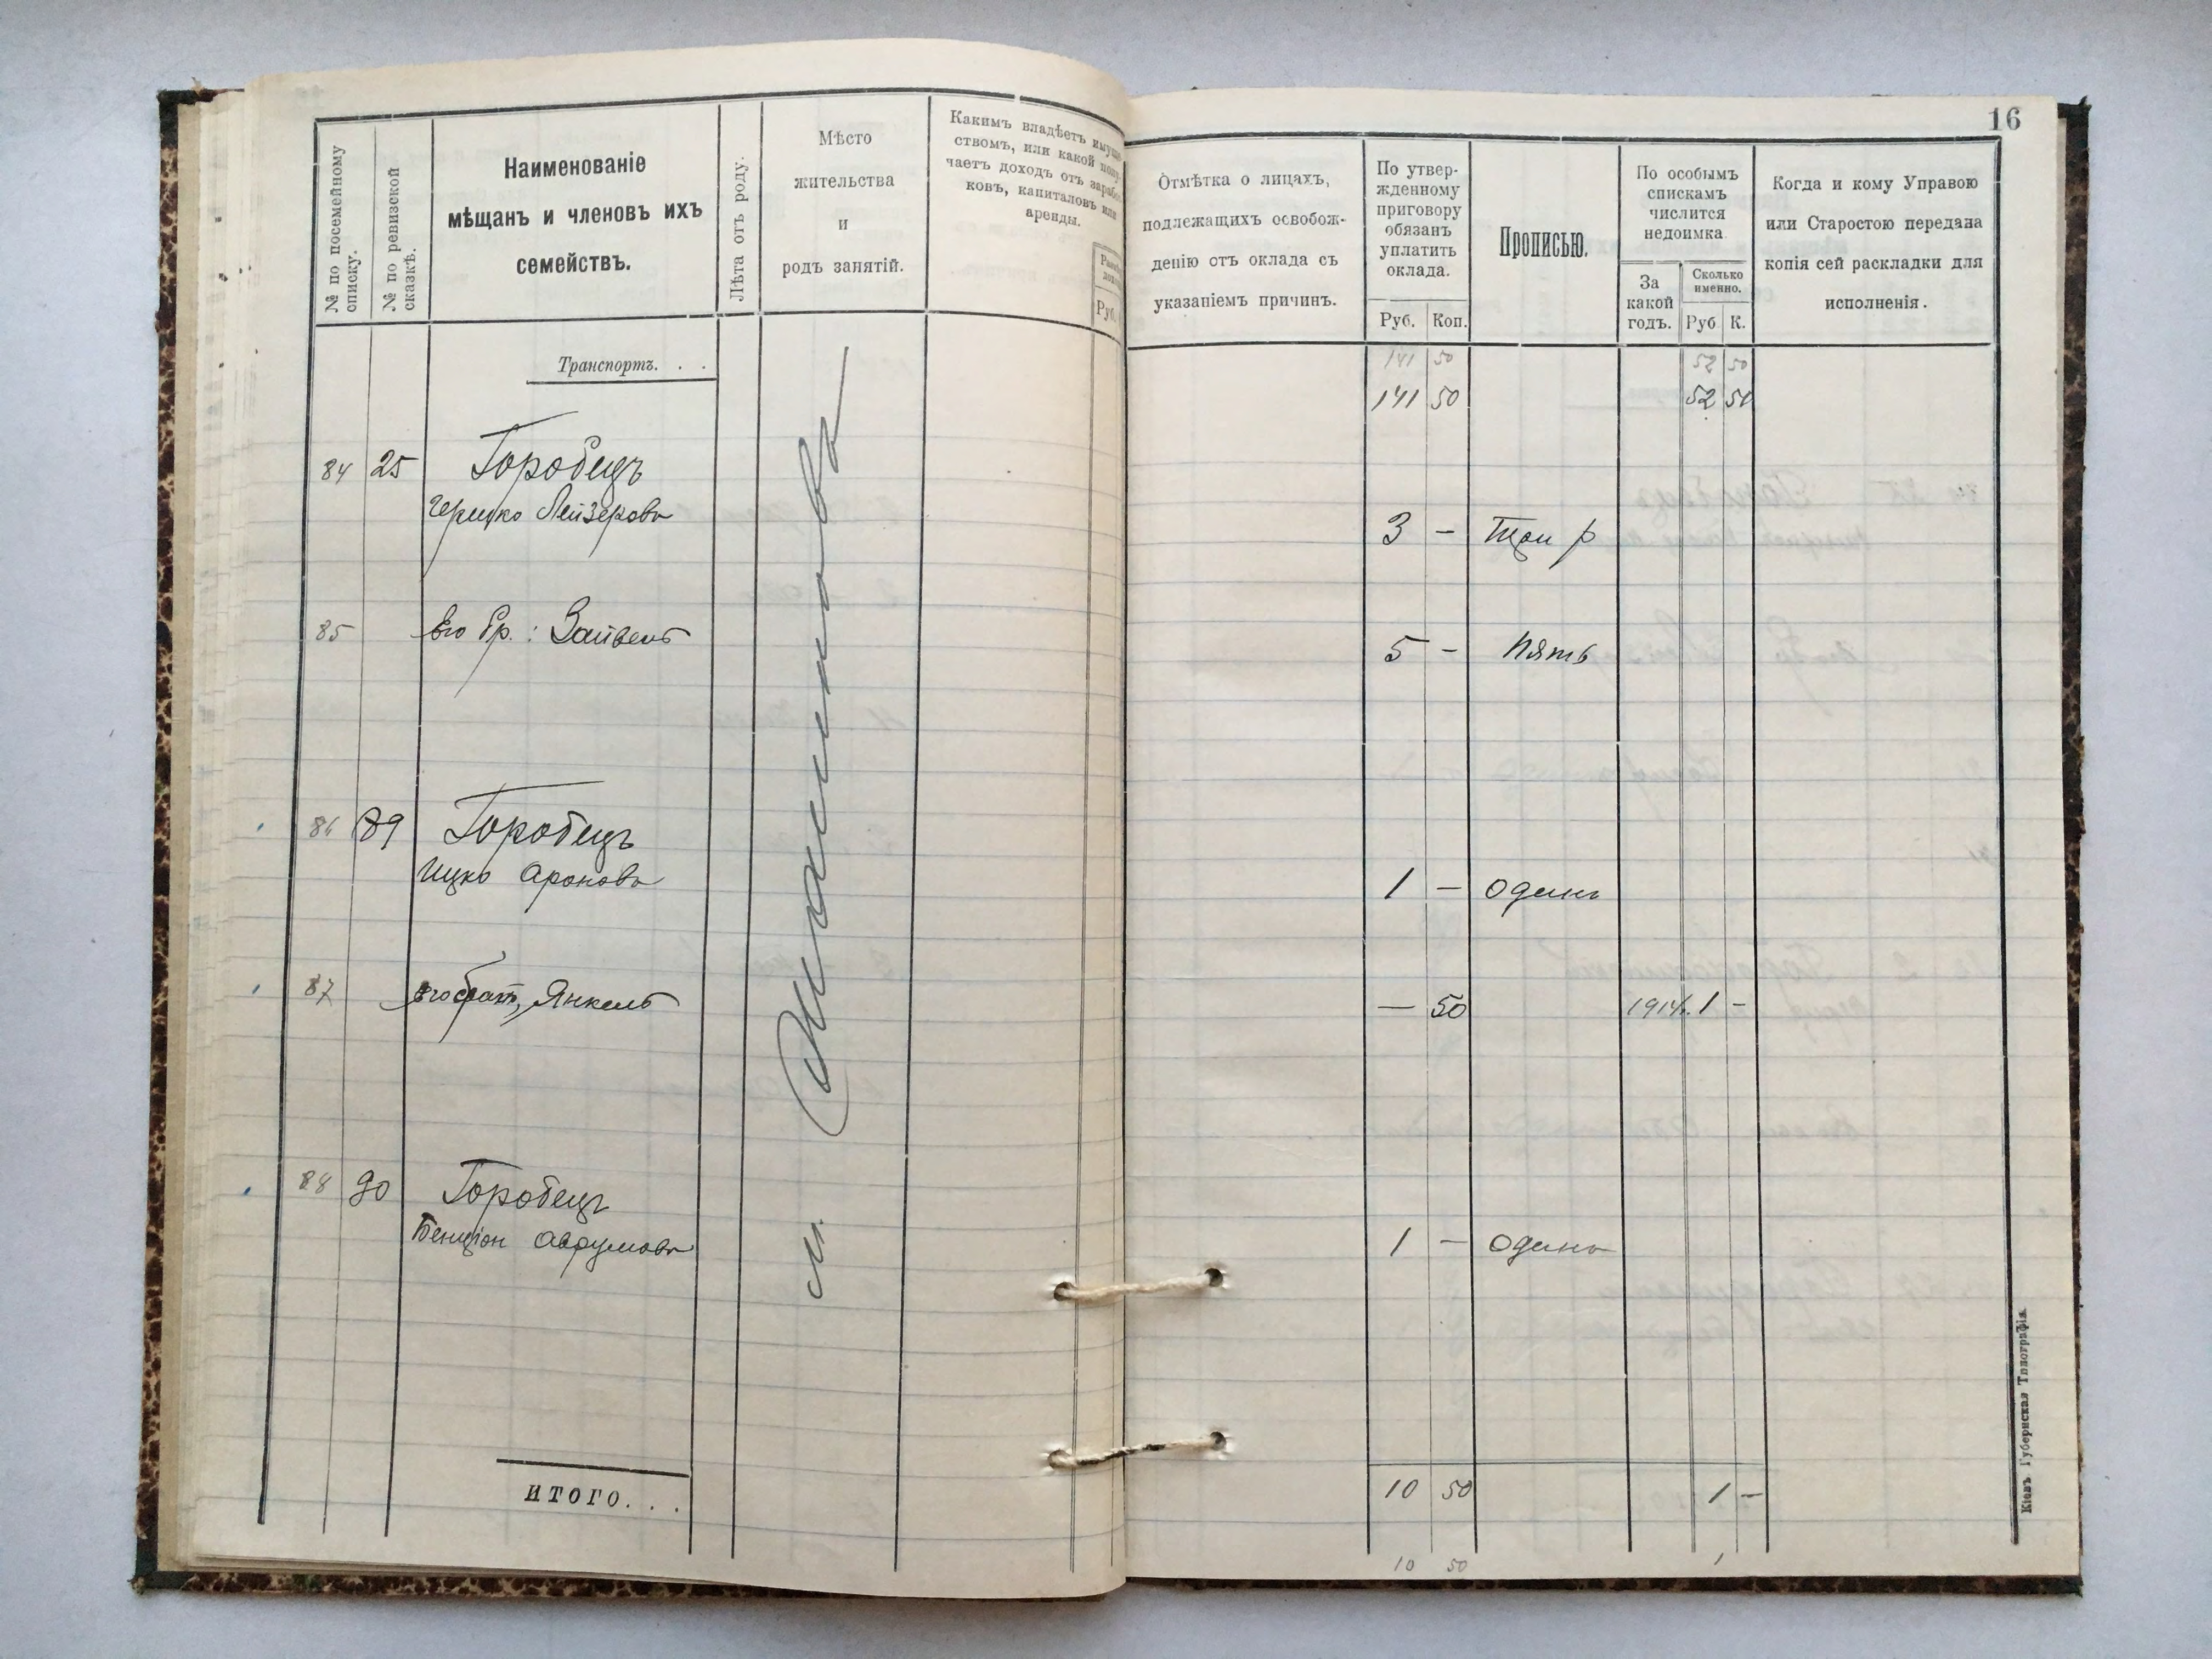 16
№ по посемейному списку.
№ по ревизской сказкѣ.
Наименованіе
мѣщанъ и членовъ ихъ
семействъ.
Лѣта отъ роду.
Мѣсто
жительства
и
родъ занятій.
Какимъ владѣетъ имуще
ствомъ, или какой полу
чаетъ доходъ отъ зарабо
ковъ, капиталовъ или
аренды.
Руб.
Отмѣтка о лицахъ,
подлежащихъ освобож-
денію отъ оклада съ
указаніемъ причинъ.
По утвер-
жденному
приговору
обязанъ
уплатить
оклада.
Руб. Коп.
Прописью.
По особымъ
спискамъ
числится
недоимка
За
какой
годъ.
Сколько
именно.
Руб К.
Когда и кому Управою
или Старостою передана
копія сей раскладки для
исполненія.
Транспортъ. . .
141 50 52 50
141 50 52 50
84 25 Горобецъ
Лейзеровъ
3 — Три р
85 Его бр.: Зайвель
5 — Пять
86 89 Горобецъ
Ицко Ароновъ
1 — Одинъ
87 Его братъ, Янкель
— 50 1914г. 1 —
88 90 Горобецъ
Бенціон Аврумовъ
1 — Одинъ
м.
ИТОГО. . .
10 50 1 —
10 50 1
Кіевъ Губернская Типографія.